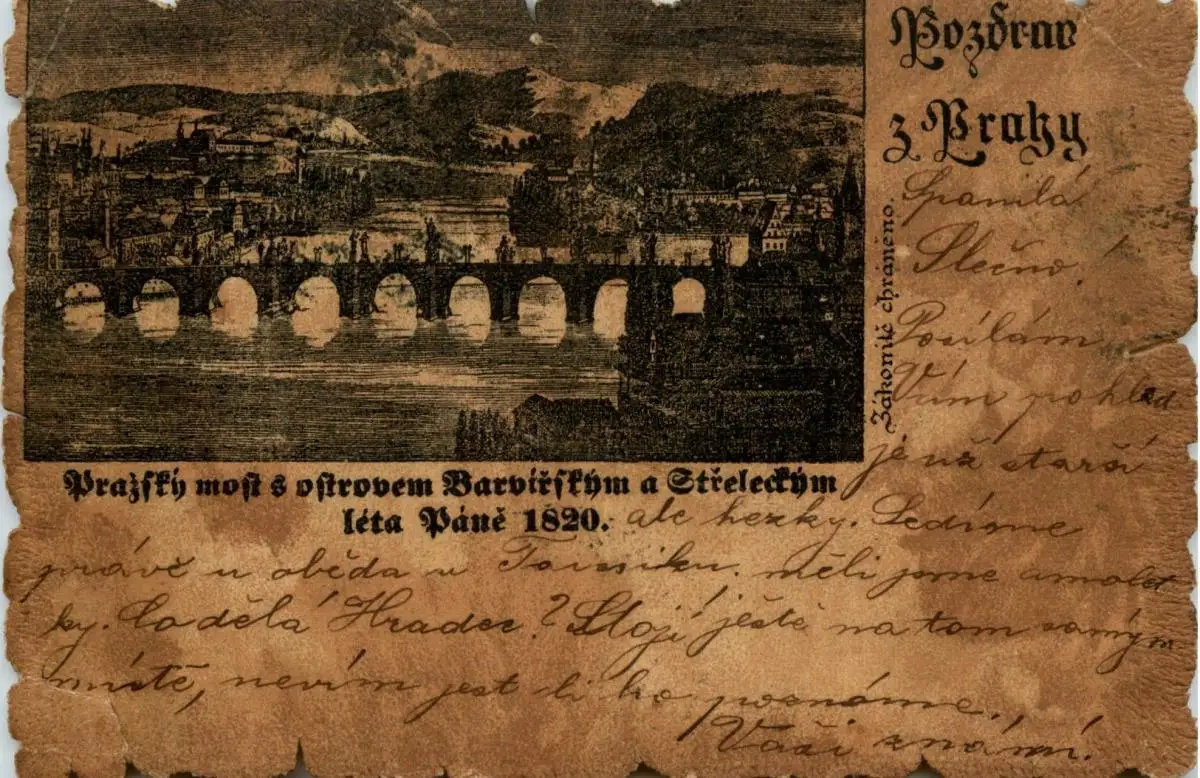 Pozdrav
z Prahy
Zákonitě chráněno.
Pražský most s ostrovem Barvířským a Střeleckým
léta Páně 1820.
Spanilá
Slečno!
Posílám
Vám pohled
je už starší
ale hezky. Sedíme
právě u oběda u měli jsme amolet
ky. Co dělá Hradec? Stojí ještě na tom samým
místě, nevím jest li ho poznáme.
Vaši známí.